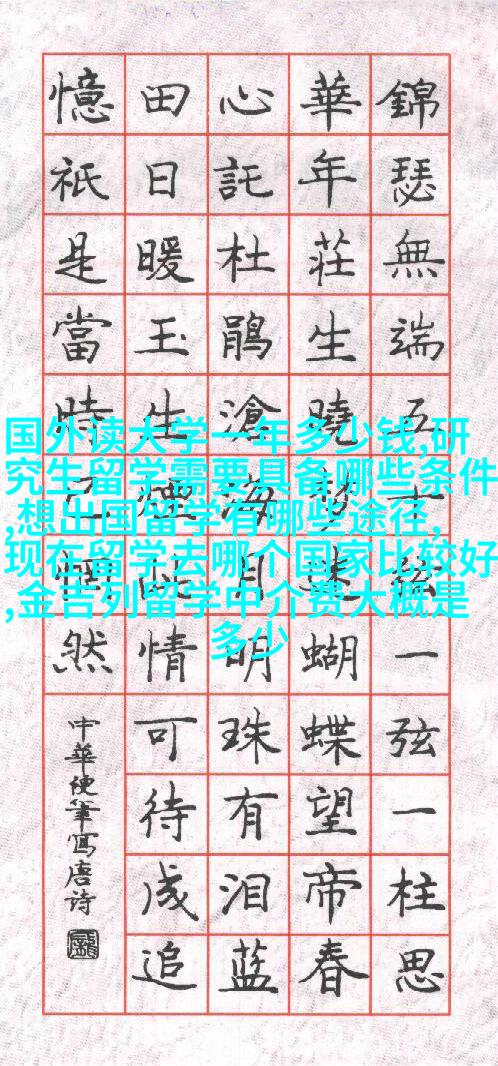 錦瑟無端五十絃一弦一柱思
華年莊生曉夢迷蝴蝶望帝春
心託杜鹃滄海月明珠有泪蓝
田日暖玉生煙此情可待成追
憶祇是當時已惘然
中華硬筆寫唐诗
国外读大学一年多少钱,研
究生留学需要具备哪些条件
,想出国留学有哪些途径,
现在留学去哪个国家比较好
,金吉列留学中介费大概是
多少